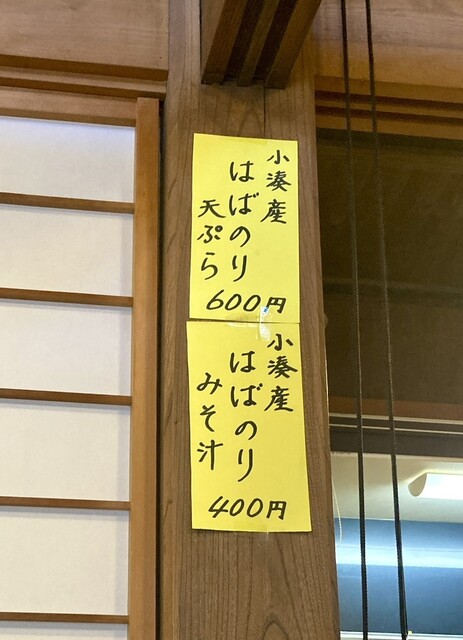 小湊産
はばのり
天ぷら
600円
小湊産
はばのり
みそ汁
400円